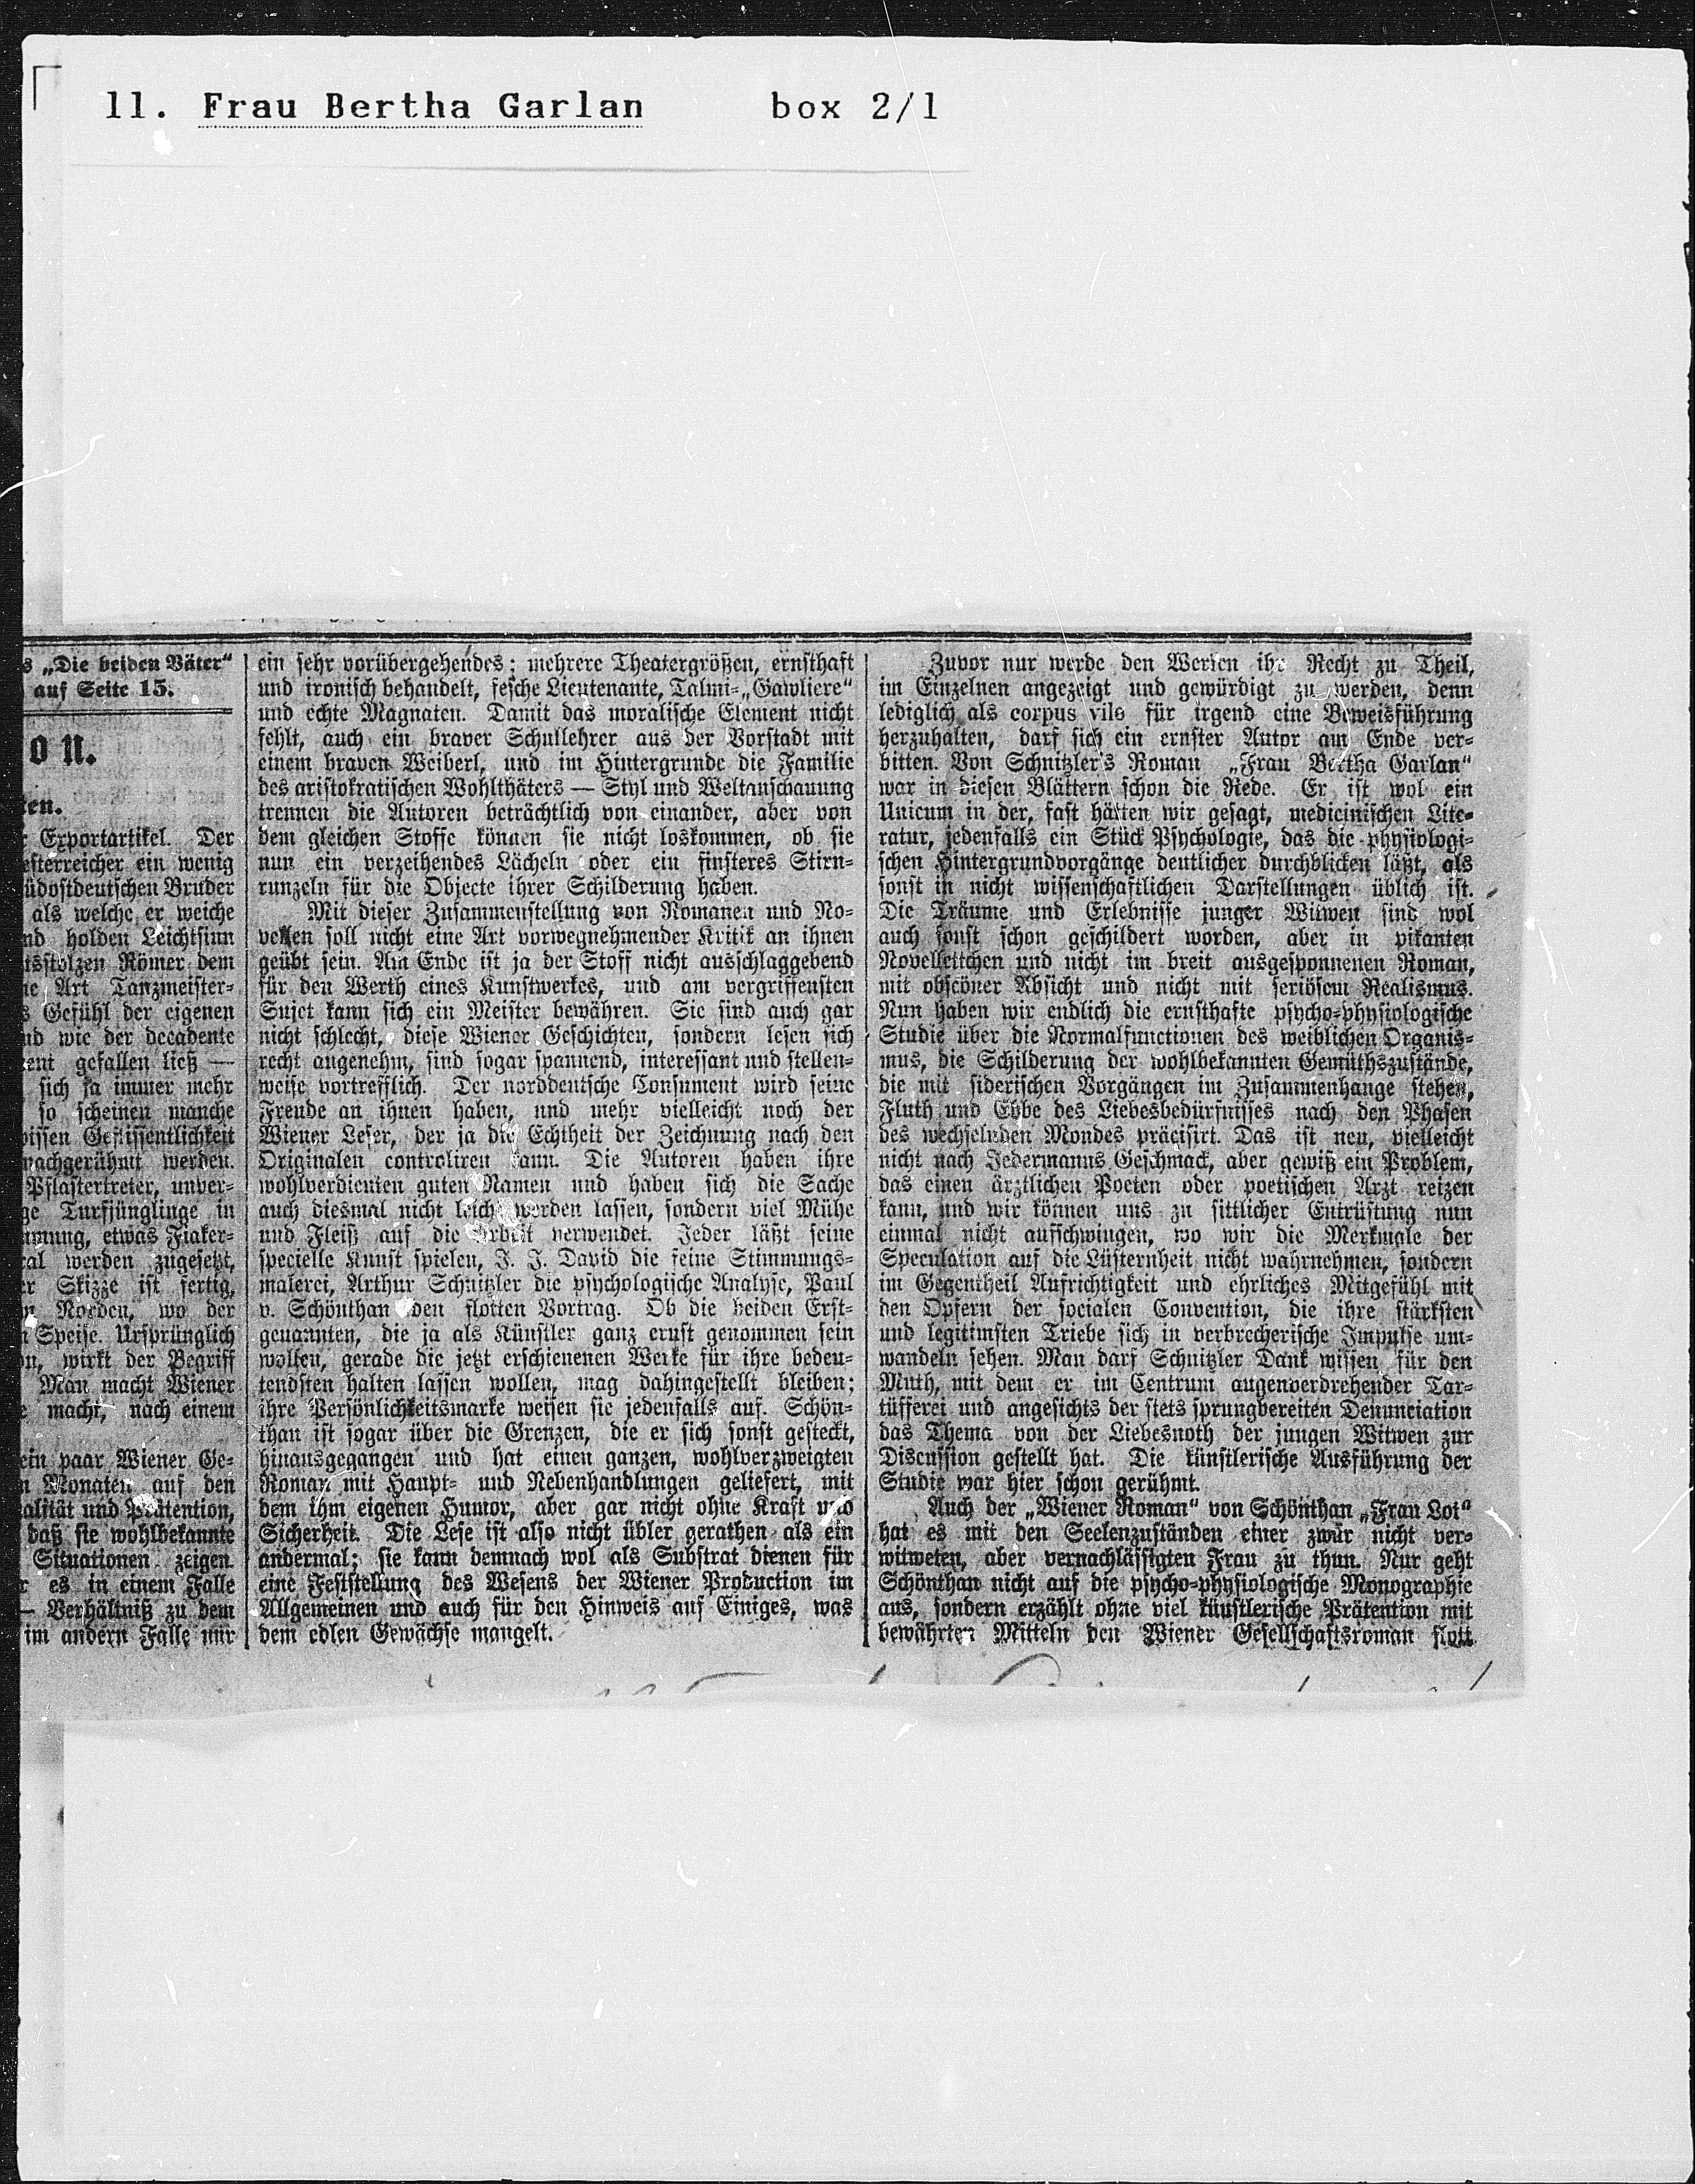 11. Frau Bertha Garlan box 2/1
„Die beiden Väter“
auf Seite 15.
on.
Exportartikel. Der
ein wenig
Bruder
als welche er weiche
holden Leichtsinn
Römer dem
Art Tanzmeister-
Gefühl der eigenen
wie der decadente
gefallen ließ —
sich ja immer mehr
so scheinen manche
Geflissentlichkeit
nachgerühmt werden.
Pflastertreter, unver-
Turfjünglinge in
etwas Fiaker-
werden zugesetzt,
Skizze ist fertig,
Norden, wo der
Speise. Ursprünglich
wirkt der Begriff
Man macht Wiener
macht, nach einem
ein paar Wiener Ge-
Monaten auf den
und Prätention,
daß sie wohlbekannte
Situationen zeigen.
es in einem Falle
— Verhältniß zu dem
im andern Falle nur
ein sehr vorübergehendes; mehrere Theatergrößen, ernsthaft
und ironisch behandelt, fesche Lieutenante, Talmi-„Gawliere“
und echte Magnaten. Damit das moralische Element nicht
fehlt, auch ein braver Schullehrer aus der Vorstadt mit
einem braven Weiberl, und im Hintergrunde die Familie
des aristokratischen Wohlthäters — Styl und Weltanschauung
trennen die Autoren beträchtlich von einander, aber von
dem gleichen Stoffe können sie nicht loskommen, ob sie
nun ein verzeihendes Lächeln oder ein finsteres Stirn-
runzeln für die Objecte ihrer Schilderung haben.
Mit dieser Zusammenstellung von Romanen und No-
vellen soll nicht eine Art vorwegnehmender Kritik an ihnen
geübt sein. Am Ende ist ja der Stoff nicht ausschlaggebend
für den Werth eines Kunstwerkes, und am vergriffensten
Sujet kann sich ein Meister bewähren. Sie sind auch gar
nicht schlecht, diese Wiener Geschichten, sondern lesen sich
recht angenehm, sind sogar spannend, interessant und stellen-
weise vortrefflich. Der norddeutsche Consument wird seine
Freude an ihnen haben, und mehr vielleicht noch der
Wiener Leser, der ja die Echtheit der Zeichnung nach den
Originalen controliren kann. Die Autoren haben ihre
wohlverdienten guten Namen und haben sich die Sache
auch diesmal nicht leicht werden lassen, sondern viel Mühe
und Fleiß auf die Arbeit verwendet. Jeder läßt seine
specielle Kunst spielen, J. J. David die feine Stimmungs-
malerei, Arthur Schnitzler die psychologische Analyse, Paul
v. Schönthan den flotten Vortrag. Ob die beiden Erst-
genannten, die ja als Künstler ganz ernst genommen sein
wollen, gerade die jetzt erschienenen Werke für ihre bedeu-
tendsten halten lassen wollen, mag dahingestellt bleiben;
ihre Persönlichkeitsmarke weisen sie jedenfalls auf. Schön-
than ist sogar über die Grenzen, die er sich sonst gesteckt,
hinausgegangen und hat einen ganzen, wohlverzweigten
Roman mit Haupt- und Nebenhandlungen geliefert, mit
dem ihm eigenen Humor, aber gar nicht ohne Kraft und
Sicherheit. Die Lese ist also nicht übler gerathen als ein
andermal; sie kann demnach wol als Substrat dienen für
eine Feststellung des Wesens der Wiener Production im
Allgemeinen und auch für den Hinweis auf Einiges, was
dem edlen Gewächse mangelt.
Zuvor nur werde den Werken ihr Recht zu Theil,
im Einzelnen angezeigt und gewürdigt zu werden, denn
lediglich als corpus vile für irgend eine Beweisführung
herzuhalten, darf sich ein ernster Autor am Ende ver-
bitten. Von Schnitzler's Roman „Frau Bertha Garlan“
war in diesen Blättern schon die Rede. Er ist wol ein
Unicum in der, fast hätten wir gesagt, medicinischen Lite-
ratur, jedenfalls ein Stück Psychologie, das die physiologi-
schen Hintergrundvorgänge deutlicher durchblicken läßt, als
sonst in nicht wissenschaftlichen Darstellungen üblich ist.
Die Träume und Erlebnisse junger Witwen sind wol
auch sonst schon geschildert worden, aber in pikanten
Novellettchen und nicht im breit ausgesponnenen Roman,
mit obscöner Absicht und nicht mit seriösem Realismus.
Nun haben wir endlich die ernsthafte psycho-physiologische
Studie über die Normalfunctionen des weiblichen Organis-
mus, die Schilderung der wohlbekannten Gemüthszustände,
die mit siderischen Vorgängen im Zusammenhange stehen,
Fluth und Ebbe des Liebesbedürfnisses nach den Phasen
des wechselnden Mondes präcisirt. Das ist neu, vielleicht
nicht nach Jedermanns Geschmack, aber gewiß ein Problem,
das einen ärztlichen Poeten oder poetischen Arzt reizen
kann, und wir können uns zu sittlicher Entrüstung nun
einmal nicht aufschwingen, wo wir die Merkmale der
Speculation auf die Lüsternheit nicht wahrnehmen, sondern
im Gegentheil Aufrichtigkeit und ehrliches Mitgefühl mit
den Opfern der socialen Convention, die ihre stärksten
und legitimsten Triebe sich in verbrecherische Impulse um-
wandeln sehen. Man darf Schnitzler Dank wissen für den
Muth, mit dem er im Centrum augenverdrehender Tar-
tüfferei und angesichts der stets sprungbereiten Denunciation
das Thema von der Liebesnoth der jungen Witwen zur
Discussion gestellt hat. Die künstlerische Ausführung der
Studie war hier schon gerühmt.
Auch der „Wiener Roman“ von Schönthan „Frau Loi“
hat es mit den Seelenzuständen einer zwar nicht ver-
witweten, aber vernachlässigten Frau zu thun. Nur geht
Schönthan nicht auf die psycho-physiologische Monographie
aus, sondern erzählt ohne viel künstlerische Prätention mit
bewährten Mitteln den Wiener Gesellschaftsroman flott